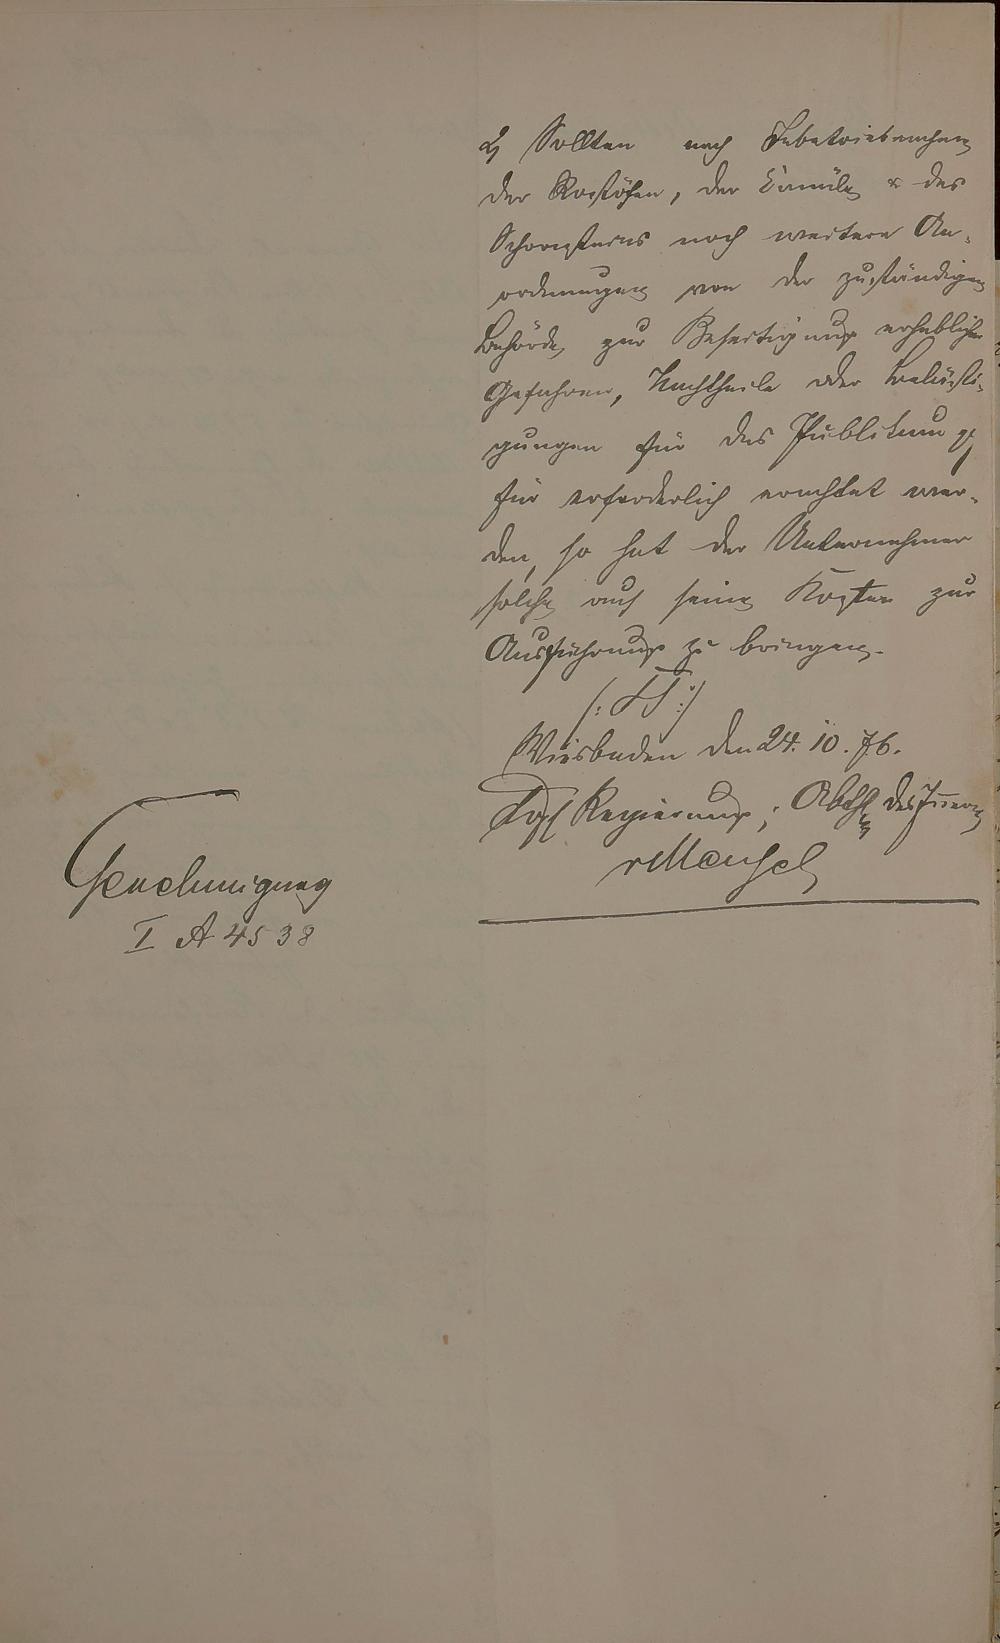 2) Sollten nach Inbetriebnahme
der Rostöfen, der Canäle & des
Schornsteins noch weitere An-
ordnungen von der zuständigen
Behörde zur Beseitigung erheblicher
Gefahren, Nachtheile oder Belästi-
gungen für das Publikum pp
für erforderlich erachtet wer-
den, so hat der Unternehmer
solche auf seine Kosten zur
Ausführung zu bringen.
Wiesbaden den 24. 10. 76.
Kgl Regierung, Abthlg des Innern
Genehmigung
I A 4538